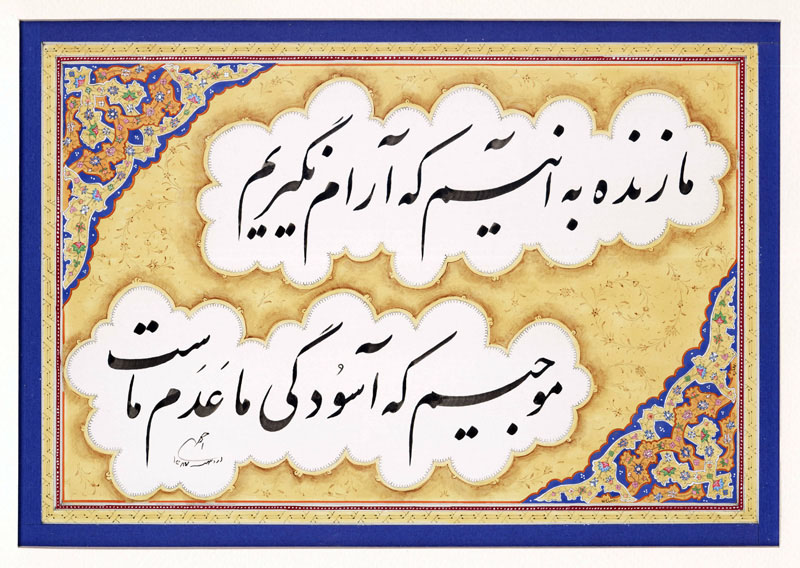 ما زنده به آنیم که آرام نگیریم
موجیم که آسودگی ما عَدَم ماست